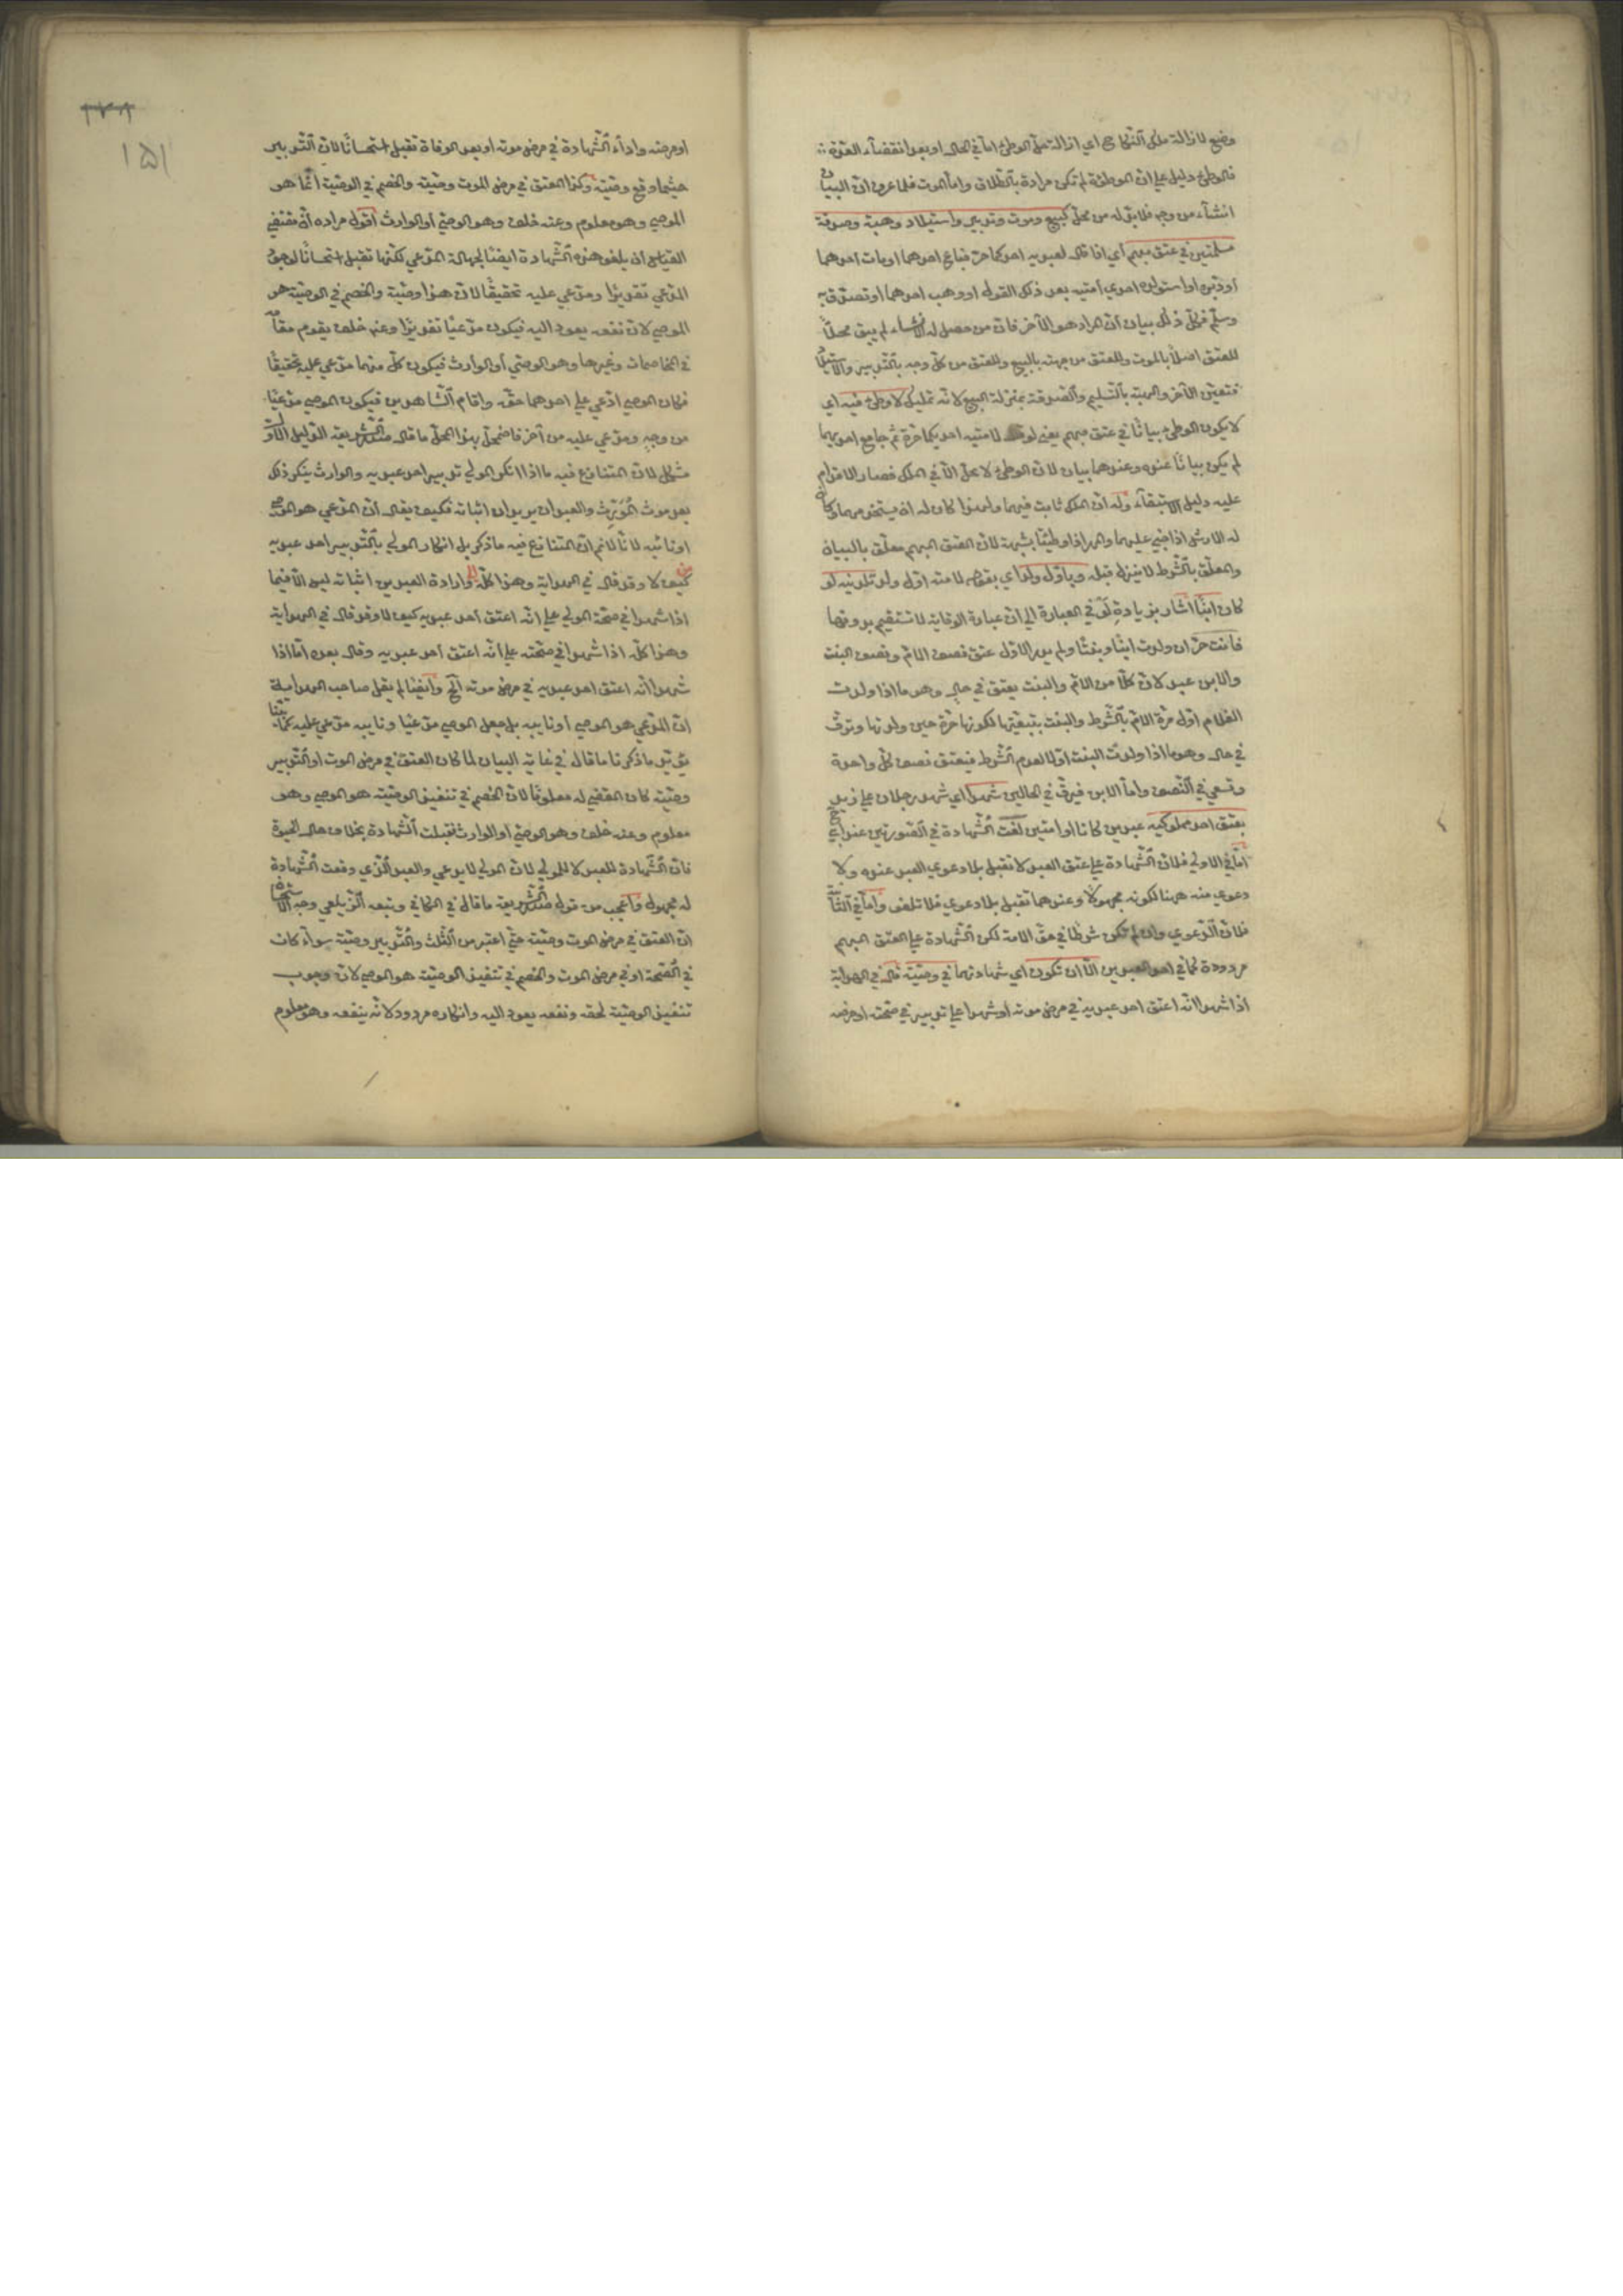 وضع لازالة ملك النكاح اي ازالة حل الوطئ اما في الحال او بعد انقضاء العدة
فالوطئ دليل على ان الموطؤة لم تكن مرادة بالطلاق واما الموت فلما عرف ان البيان
انشاء من وجه فلا بد له من محل كبيع وموت وتدبير واستيلاد وهبة وصدقة
مسلمتين في عتق مبهم اي اذا قال لعبديه احدكما حر فباع احدهما او مات احدهما
او دبره او استولد احدى امتيه بعد ذلك القول او وهب احدهما او تصدق به
وسلم فكل ذلك بيان ان المراد هو الآخر فان من حصل له الانشاء لم يبق محلا
للعتق اصلا بالموت وللعتق من جهته بالبيع وللعتق من كل وجه بالتدبير والاستيلاد
فتعين الآخر والهبة بالتسليم والصدقة بمنزلة البيع لانه تمليك لا وطئ فيه اي
لا يكون الوطئ بيانا في عتق مبهم يعني لو قال لامتيه احديكما حرة ثم جامع احديهما
لم يكن بيانا عنده وعندهما بيان لان الوطئ لا يحل الا في الملك فصار الاقدام
عليه دليل الاستبقاء وله ان الملك ثابت فيهما ولهذا كان له ان يستخدمهما وكان
له الارش اذا جني عليهما والمهر اذا وطئتا بشبهة لان العتق المبهم معلق بالبيان
والمعلق بالشرط لا ينزل قبله وباول ولد اي بقوله لامته اول ولد تلدينه لو
كان ابنا اشار بزيادة لو في العبارة الى ان عبارة الوقاية لا تستقيم بدونها
فانت حر ان ولدت ابنا وبنتا ولم يدر الاول عتق نصف الام ونصف البنت
والابن عبد لان كلا من الام والبنت يعتق في حال وهو ما اذا ولدت
الغلام اول مرة الام بالشرط والبنت بتبعيتها لكونها حرة حين ولدتها وترق
في حال وهو ما اذا ولدت البنت اولا لعدم الشرط فيعتق نصف كل واحدة
وتسعى في النصف واما الابن فيرق في الحالين شهدا اي شهد رجلان على زيد
بعتق احد مملوكيه عبدين كانا او امتين لغت الشهادة في الصورتين عند ابي ح
اما في الاولى فلان الشهادة على عتق العبد لا تقبل بلا دعوى العبد عنده ولا
دعوى منه ههنا لكونه مجهولا وعندهما تقبل بلا دعوى فلا تلغو واما في الثانية
فلان الدعوى وان لم تكن شرطا في حق الامة لكن الشهادة على العتق المبهم
مردودة كما في احد العبدين الا ان تكون اي شهادتهما في وصيته قال في الهداية
اذا شهدا انه اعتق احد عبديه في مرض موته او شهدا على تدبيره في صحته او مرضه
١٥١
او مرضه واداء الشهادة في مرض موته او بعد الوفاة تقبل استحسانا لان التدبير
حيثما وقع وصية وكذا العتق في مرض الموت وصية والخصم في الوصية انما هو
الموصي وهو معلوم وعنه خلف وهو الوصي او الوارث اقول مراده ان مقتضى
القياس ان يلغو هذه الشهادة ايضا لجهالة المدعي لكنها تقبل استحسانا لوجود
المدعي تقديرا ومدعى عليه تحقيقا لان هذا وصية والخصم في الوصية هو
الموصي لان نفعه يعود اليه فيكون مدعيا تقديرا وعنه خلف يقوم مقامه
في المخاصمات وغيرها وهو الوصي او الوارث فيكون كل منهما مدعى عليه تحقيقا
فكان الموصي ادعى على احدهما حقه واقام الشاهدين فيكون الموصي مدعيا
من وجه ومدعى عليه من آخر فاضمحل بهذا المحل ما قال صدر الشريعة الدليل الاول
مشكل لان المتنازع فيه ما اذا انكر المولى تدبير احد عبديه والوارث ينكر ذلك
بعد موت المورث والعبدان يريدان اثباته فكيف يقال ان المدعي هو الموصي
او نائبه لانا لا نم ان المتنازع فيه ما ذكر بل انكار المولى بالتدبير احد عبديه
كيف لا وقد قال في الهداية وهذا كله وارادة العبدين اثباته ليس الا فيما
اذا شهدا في صحة المولى على انه اعتق احد عبديه كيف لا وقد قال في الهداية
وهذا كله اذا شهدا في صحته على انه اعتق احد عبديه وقال بعده اما اذا
شهدا انه اعتق احد عبديه في مرض موته الخ وايضا لم يقل صاحب الهداية
ان المدعي هو الموصي او نايبه بل جعل الموصي مدعيا ونايبه مدعى عليه كما بينا
يؤيد ما ذكرنا ما قال في غاية البيان لما كان العتق في مرض الموت او التدبير
وصية كان المقضي له معلوما لان الخصم في تنفيذ الوصية هو الموصي وهو
معلوم وعنه خلف وهو الوصي او الوارث فقبلت الشهادة بخلاف حال الحيوة
فان الشهادة للعبد لا للمولى لان المولى لا يدعي والعبد الذي وقعت الشهادة
له مجهول واعجب من قول صدر الشريعة ما قال في الكافي وتبعه الزيلعي وجه الاستحسان
ان العتق في مرض الموت وصية حتى اعتبر من الثلث والتدبير وصية سواء كان
في الصحة او في مرض الموت والخصم في تنفيذ الوصية هو الموصي لان وجوب
تنفيذ الوصية لحقه ونفعه يعود اليه وانكاره مردود لانه ينفعه وهو معلوم